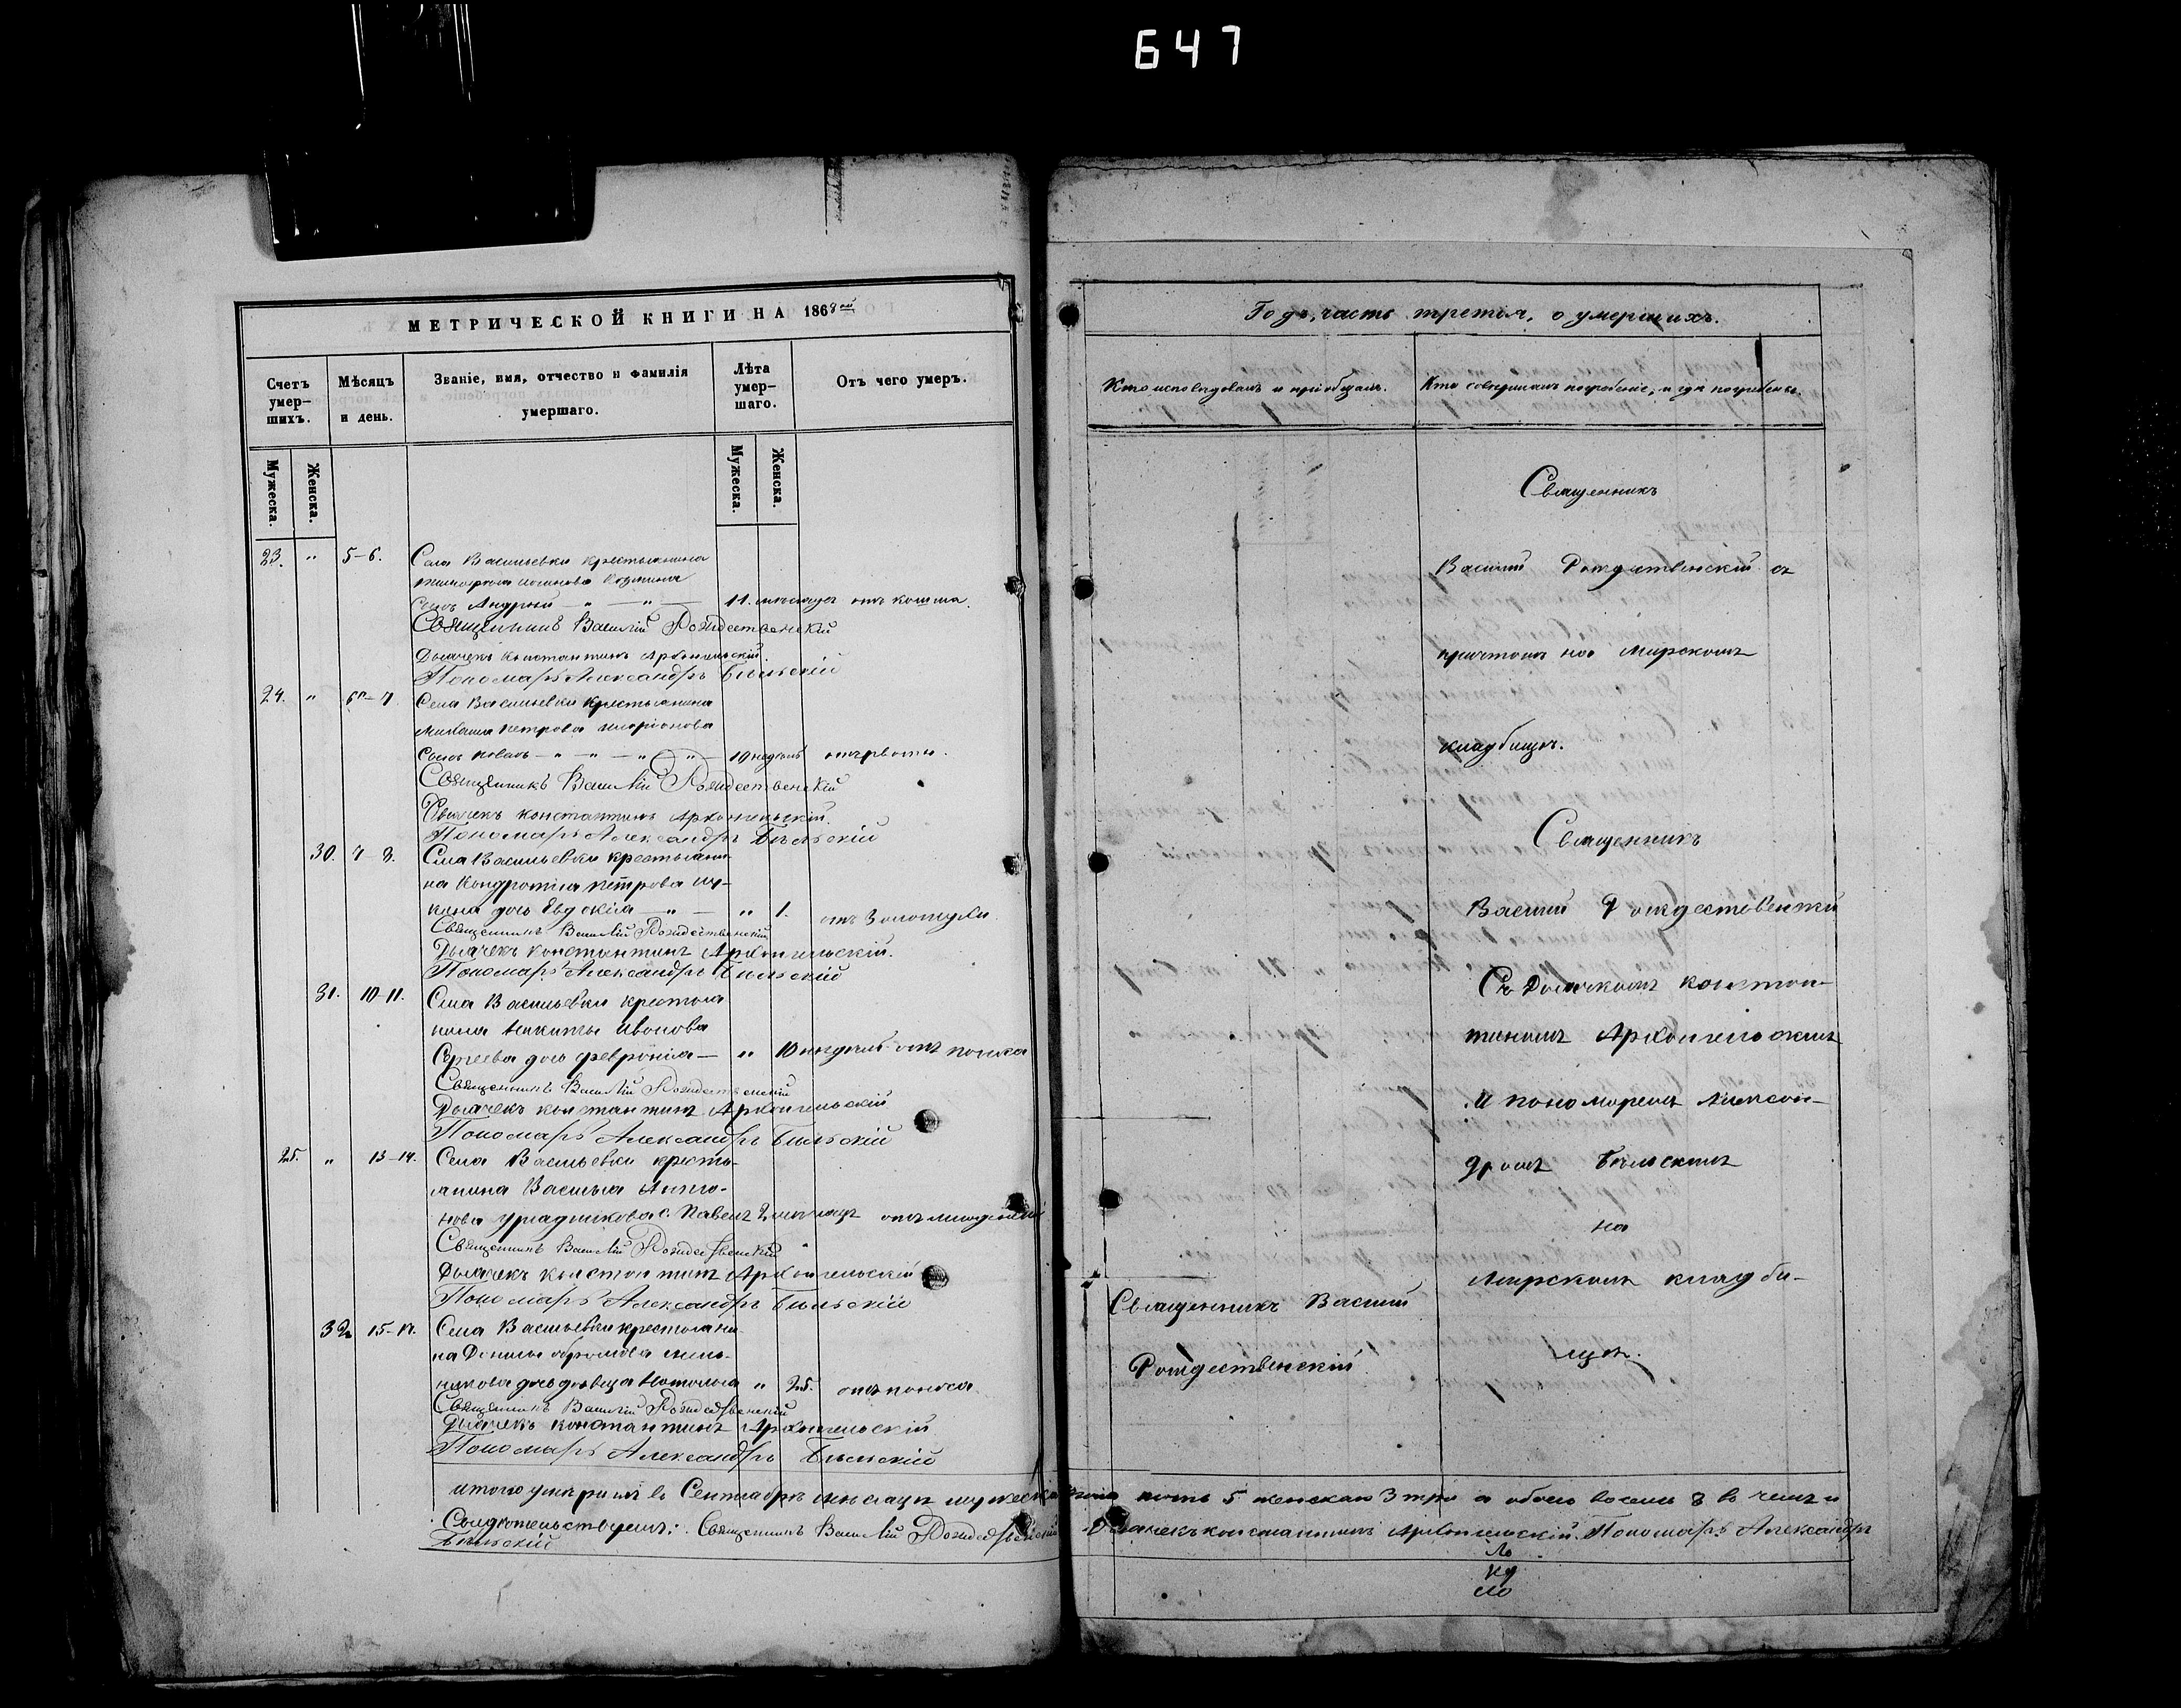 647
МЕТРИЧЕСКОЙ КНИГИ НА 1868 ой
Счетъ умер- шихъ.
Мѣсяцъ и день.
Званіе, имя, отчество и фамилія умершаго.
Лѣта умер- шаго.
Отъ чего умеръ.
Мужеска.
Женска.
Мужеска.
Женска.
23. " 5-6. Села Васильевки крестьянина
Козмина
сынъ Андрей — " — " — 11. мѣсяцъ отъ кашля.
Священникъ Василій Рождественскій
Дьячекъ Константинъ Архангельскій.
Пономарь Александръ Бѣльскій
24. " 6-7. Села Васильевки крестьянина
Петрова
сынъ — " — " — " — " — 10 недѣль отъ рвоты.
Священникъ Василій Рождественскій
Дьячекъ Константинъ Архангельскій.
Пономарь Александръ Бѣльскій
30. 7-8. Села Васильевки крестьяни-
на Кондратія Петрова
дочь Евдокія — " — " 1. отъ Золотухи.
Священникъ Василій Рождественскій
Дьячекъ Константинъ Архангельскій.
Пономарь Александръ Бѣльскій
31. 10-11. Села Васильевки крестья
нина Никиты Иванова
Сергеева дочь Февронія — " 10 недѣль отъ поноса
Священникъ Василій Рождественскій
Дьячекъ Константинъ Архангельскій
Пономарь Александръ Бѣльскій
25. " 13-14. Села Васильевки кресть-
янина Василья Анто-
нова Урядникова с. Павелъ 2 мѣсяцъ отъ
Священникъ Василій Рождественскій
Дьячекъ Константинъ Архангельскій
Пономарь Александръ Бѣльскій
32 15-17. Села Васильевки крестьяни-
на Данилы Абрамова Мель-
никова дочь девица Наталья " 25. отъ поноса.
Священникъ Василій Рождественскій
Дьячекъ Константинъ Архангельскій
Пономарь Александръ Бѣльскій
Годъ, часть третія, о умершихъ.
Кто исповѣдовалъ и пріобщалъ.
Кто совершалъ погребеніе, и гдѣ погребены.
Священникъ
Василій Рождественскій съ
причтомъ на Мирскомъ
кладбищѣ.
Священникъ
Василій Рождественскій
Съ Дьячкомъ Констан-
тиномъ Архангельскимъ
и пономаремъ Алексан-
дромъ Бѣльскимъ
на
Мирскомъ кладби-
щѣ.
Священникъ Василій
Рождественскій.
итого умерших въ Сентябрѣ мѣсяцѣ мужеска пола пять 5 женскаго 3 три а обоего восемь 8 въ чемъ и
Свидѣтельствуемъ: Священникъ Василій Рождественскій Дьячекъ Константинъ Архангельскій. Пономарь Александръ
Бѣльскій